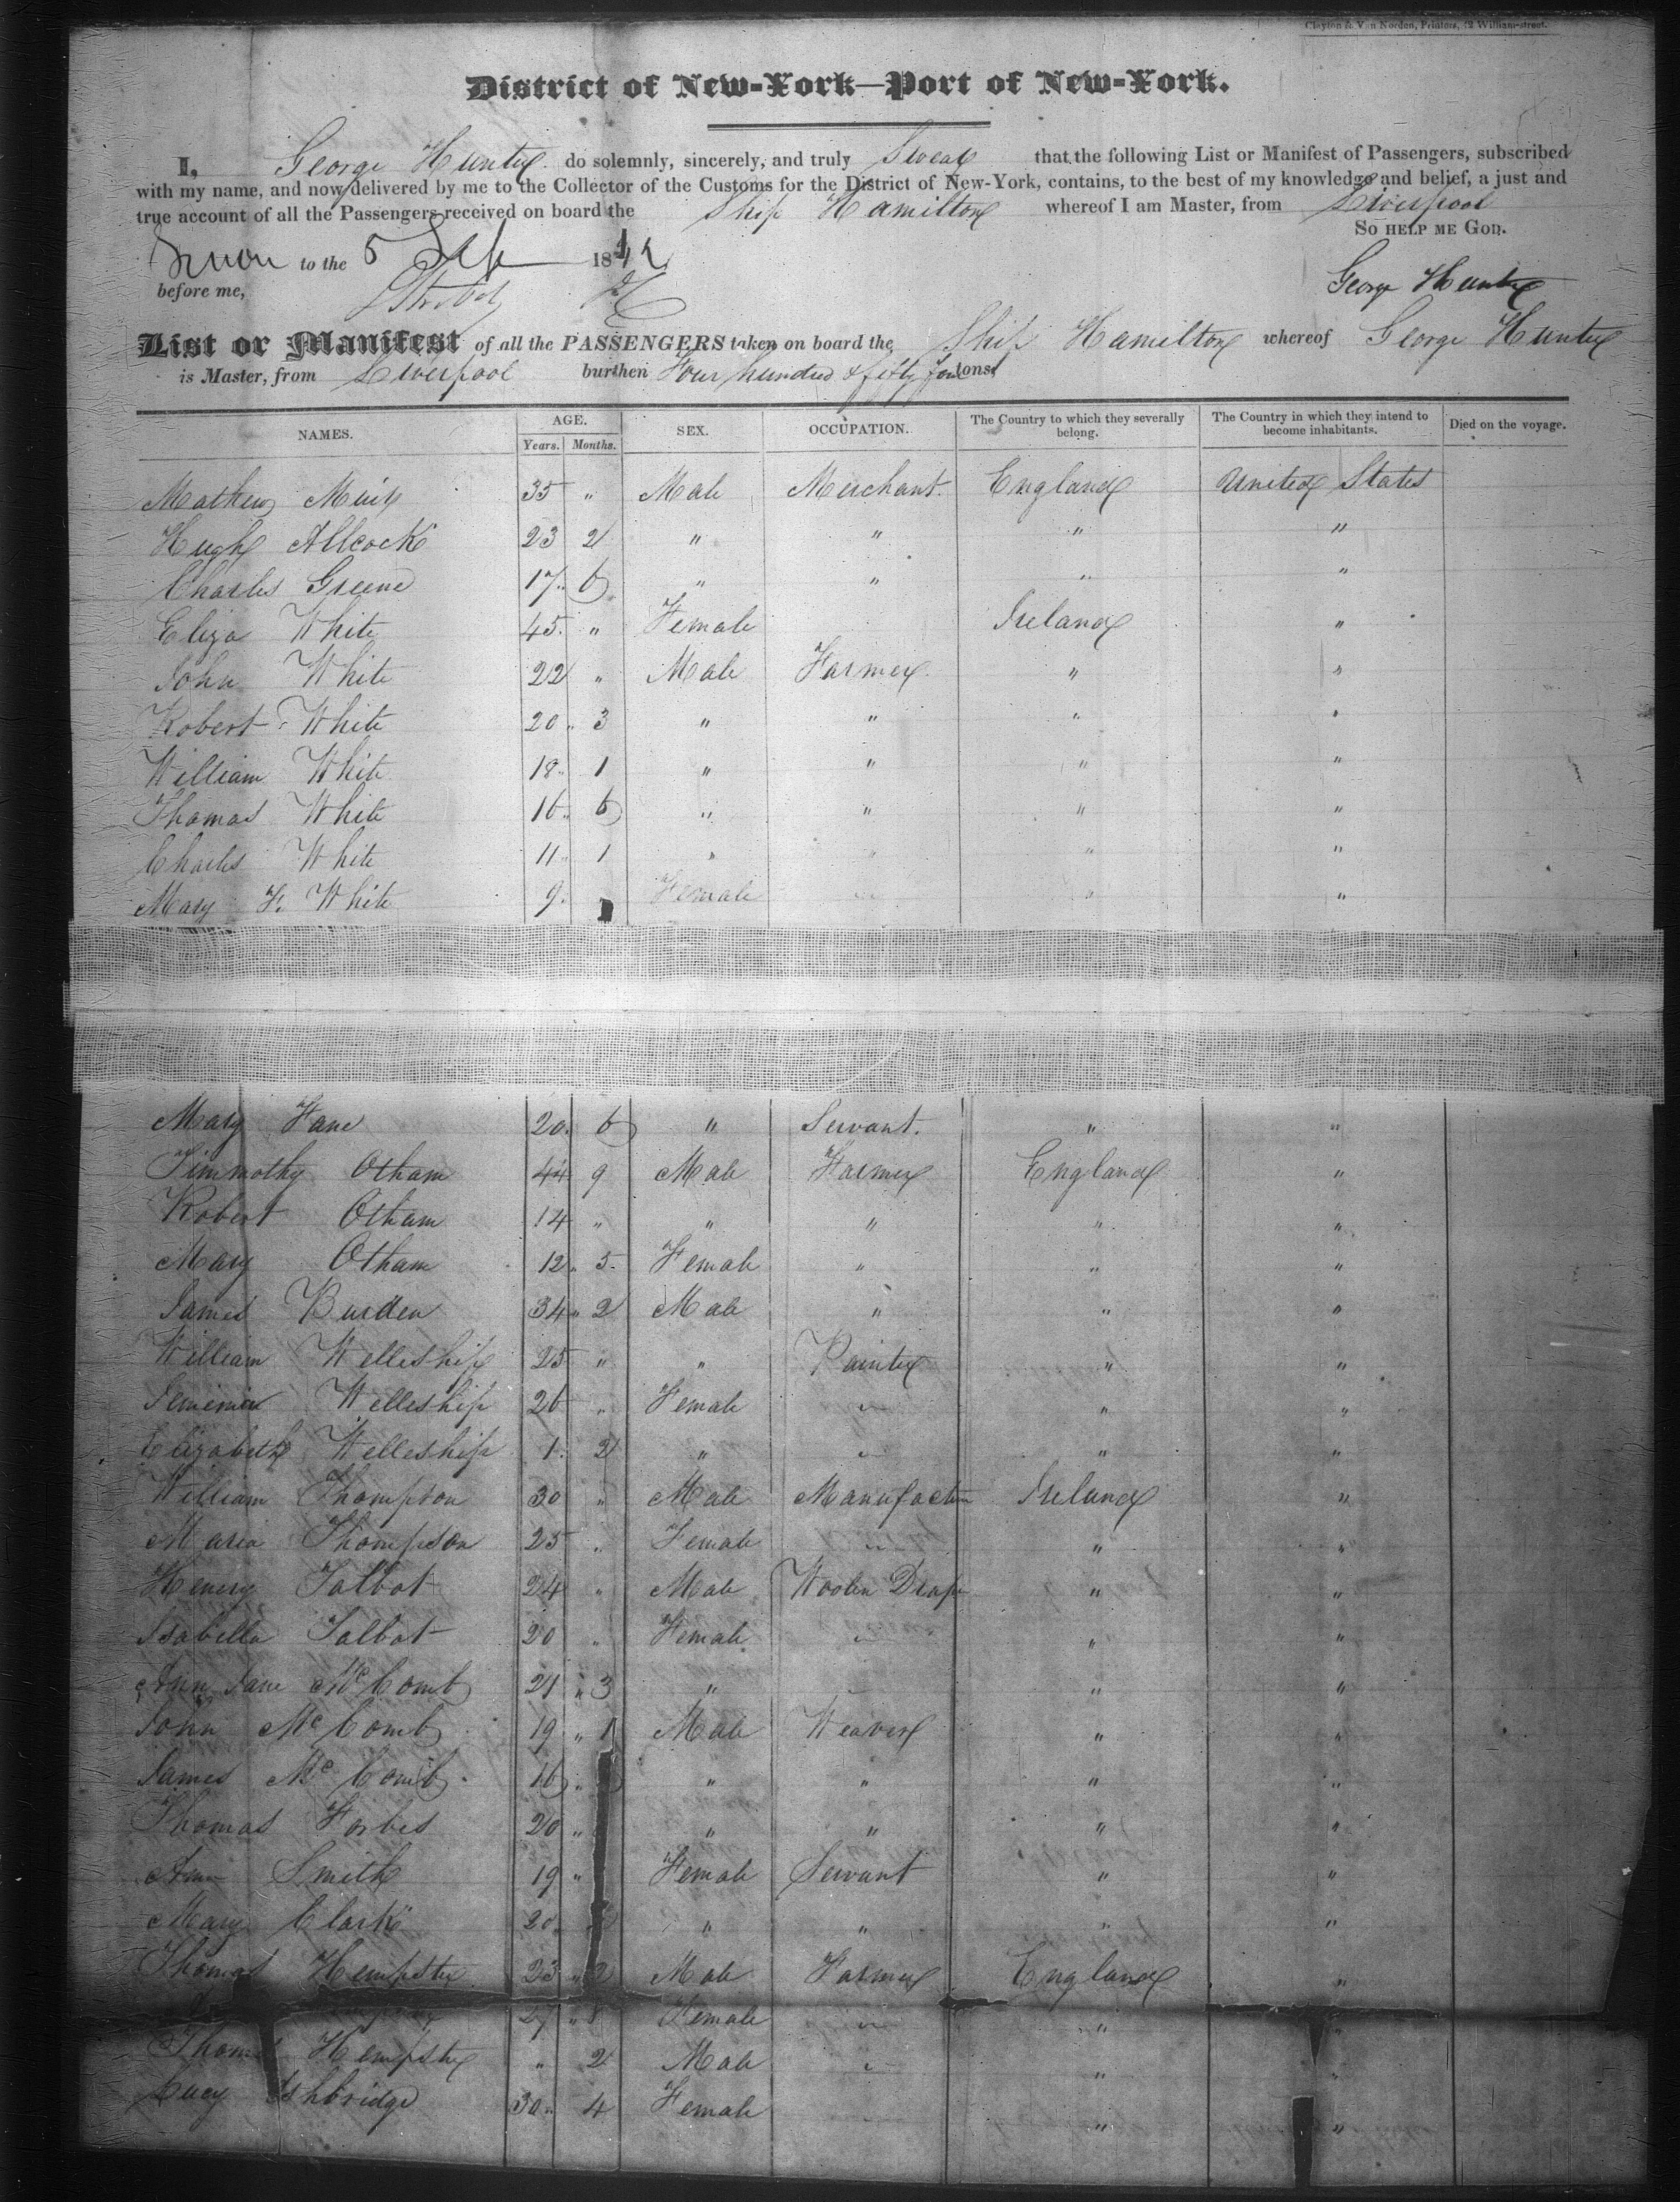 Clayton & Van Norden, Printers, 42 William-street.
District of New-York—Port of New-York.
I, George Hunter do solemnly, sincerely, and truly Swear that the following List or Manifest of Passengers, subscribed
with my name, and now delivered by me to the Collector of the Customs for the District of New-York, contains, to the best of my knowledge and belief, a just and
true account of all the Passengers received on board the Ship Hamilton whereof I am Master, from Liverpool
So help me God.
Sworn to the 5 18
before me,
George Hunter
List or Manifest of all the PASSENGERS taken on board the Ship Hamilton whereof George Hunter
is Master, from Liverpool burthen Four hundred & fifty four tons
NAMES. AGE. Years. Months. SEX. OCCUPATION. The Country to which they severally belong. The Country in which they intend to become inhabitants. Died on the voyage.
Mathew Muir 35 " Male Merchant England United States
Hugh Allcock 23 2 " " " "
Charles Greene 17 6 " " " "
Eliza White 45 " Female Ireland "
John White 22 " Male Farmer " "
Robert White 20 " 3 " " " "
William White 18 " 1 " " " "
Thomas White 16 " 6 " " " "
Charles White 11 " 1 " " " "
Mary F. White 9 " Female " " "
Mary Fane 20 6 " Servant. " "
Timmothy Otham 44 9 Male Farmer England "
Robert Otham 14 " " " " "
Mary Otham 12 " 5 Female " " "
James Burden 34 " 2 Male " " "
William Welleship 25 " " Painter " "
Jemima Welleship 26 " Female " " "
Elizabeth Welleship 1 2 " " " "
William Thompson 30 " Male Manufactur Ireland "
Maria Thompson 25 " Female " " "
Henery Talbot 24 " Male Woolen Drape " "
Isabella Talbot 20 " Female " " "
Ann Jane McComb 21 " 3 " " " "
John McComb 19 " 1 Male Weaver " "
James McComb 16 " " " " "
Thomas Forbes 20 " " " " "
Ann Smith 19 " Female Servant " "
Mary Clark 20 " " " "
Thomas Hempster 23 " 2 Male Farmer England "
27 " Female " " "
Thomas Hempster " 2 Male " " "
Lucy Ashbridge 30 " 4 Female " " "